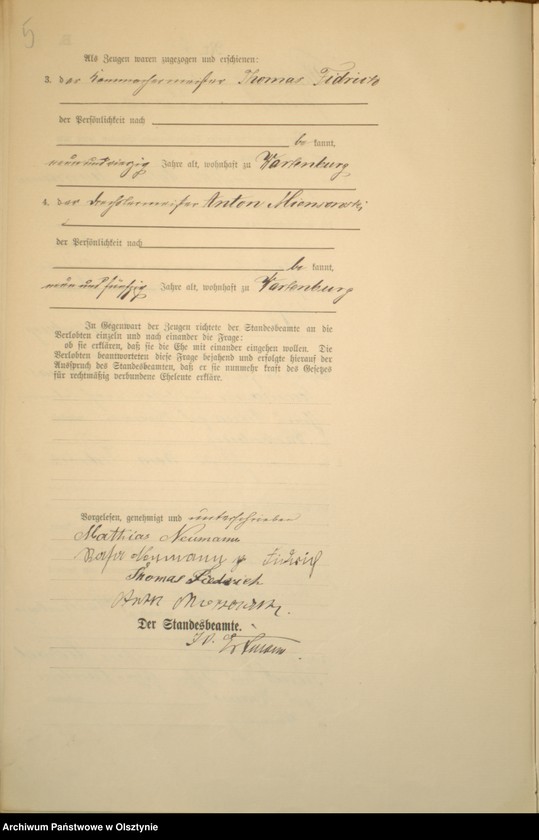 5
Als Zeugen waren zugezogen und erschienen:
3. der Kammachermeister Thomas Fidrich
der Persönlichkeit nach
be kannt,
neunundvierzig Jahre alt, wohnhaft zu Wartenburg
4. der Drechslermeister Anton
der Persönlichkeit nach
be kannt,
neunundfünfzig Jahre alt, wohnhaft zu Wartenburg
In Gegenwart der Zeugen richtete der Standesbeamte an die
Verlobten einzeln und nach einander die Frage:
ob sie erklären, daß sie die Ehe mit einander eingehen wollen. Die
Verlobten beantworteten diese Frage bejahend und erfolgte hierauf der
Ausspruch des Standesbeamten, daß er sie nunmehr kraft des Gesetzes
für rechtmäßig verbundene Eheleute erkläre.
Vorgelesen, genehmigt und unterschrieben
Mathias Neumann
Neumann
Thomas Fiedrich
Der Standesbeamte.
Archiwum Państwowe w Olsztynie